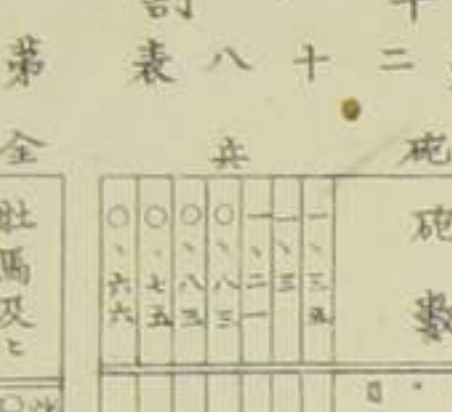 表八十二
第
砲兵
全
砲数
一、三五
一、三
一、二一
〇、八三
〇、八三
〇、七五
〇、六六
牡馬及ヒ